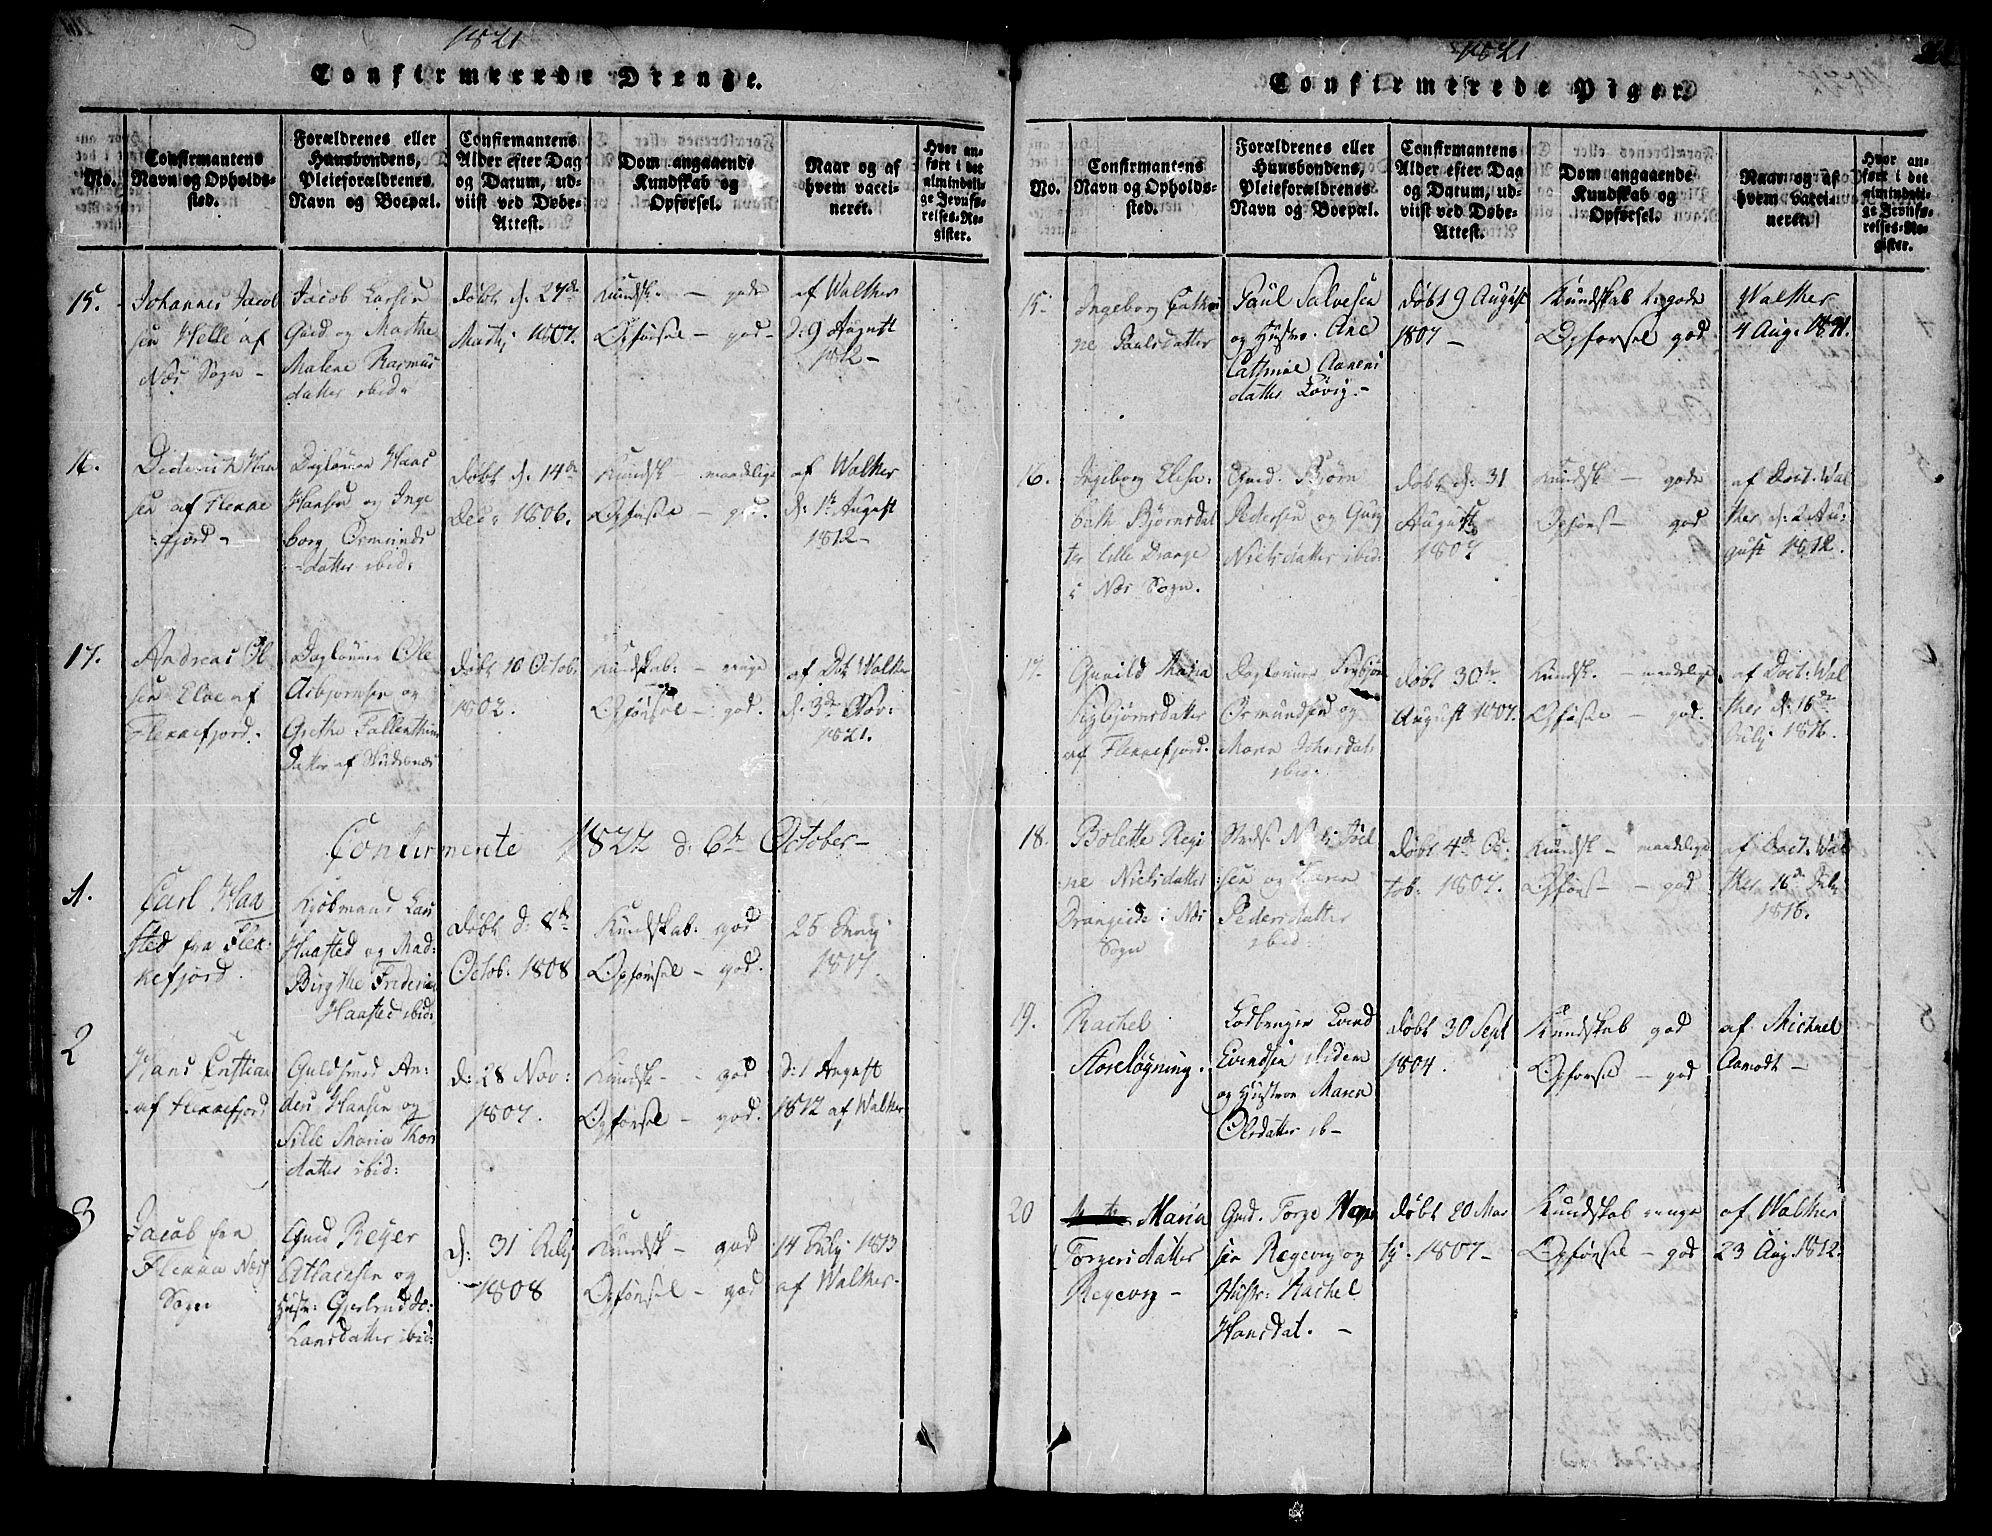 1821
Confirmerede Drenge.
No.
Confirmantens
Navn og Opholds-
sted.
Forældrenes eller
Huusbondens,
Pleieforældrenes
Navn og Boepæl.
Confirmantens
Alder efter Dag
og Datum, ud-
viist ved Døbe-
Attest.
Dom angaaende
Kundskab og
Opførsel.
Naar og af
hvem vacci-
neret.
Hvor an-
ført i det
almindeli-
ge Jevnfø-
relses-Re-
gister.
15.
Johannes Jacob
sen Helle af
Næs Sogn -
Jacob Larsen
Gaard og Marthe
Malene Rasmus
datter ibid
døbt d: 27de
Martj 1807.
Kundsk. - gode
Opførsel - god-
af Walker
d: 9 August
1812 -
16.
Diderich Han
sen af Flekke
fjord -
Dagløner Hans
Hansen og Inge
borg Ormunds
datter ibid:
døbt d: 14de
Dec. 1806.
Kundsk maadelige
Opførsel - god.
af Walker
d: 1te August
1812 -
17.
Andreas Ol
sen Eloe af
Flekkefjord.
Dagløner Ole
Asbjørnsen og
Grethe
Datter af
døbt 10 Octob:
1802.
Kundskab: - ringe
Opførsel - god.
af Dct Walker
d: 3de Nov:
1821.
Confirmerte 1822 d: 6te October -
1.
Carl Haa
sted fra Flek-
kefjord.
Kjøbmand Lars
Haasted og Mad:
Birgithe Frederica
Haasted ibid:
døbt d: 8de
Octob: 1808
Kundskab: god
Opførsel - god.
25 Junij
1817
2
Hans Cristian
af Flekkefjord
Guldsmed An-
ders Hansen og
Sille Maria Thors
datter ibid:
d: 28 Nov:
1807.
Kundsk - god
Opførsel - god.
d: 1 August
1812 af Walker
3
Jacob fra
Flekke Næs
Sogn
Gmd Reyer
Attaciesen og
Hustr: Gjertrud
Larsdatter ibid:
d: 31
1808
Kundsk - god
Opførsel - god
14 Julij 1813
af Walker-
1821
Confirmerede Piger.
No.
Confirmantens
Navn og Opholds-
sted.
Forældrenes eller
Huusbondens,
Pleieforældrenes
Navn og Boepæl.
Confirmantens
Alder efter Dag
og Datum, ud-
viist ved Døbe-
Attest.
Dom angaaende
Kundskab og
Opførsel.
Naar og af
hvem vacci-
neret.
Hvor an-
ført i det
almindeli-
ge Jevnfø-
relses-Re-
gister.
15.
Ingeborg Cathri
ne Paulsdatter
Paul Salvesen
og Hustro. Ane
Cathrine Aanens
datter Løvig. -
døbt 9 August
1807 -
Kundskab gode
Opførsel god
Walker
4 Aug.
16.
Ingeborg Elisa-
beth Bjørnsdat
ter lille Drange
i Næs Sogn.
Gmd. Bjørn
Pedersen og Guri
Nielsdatter ibid:
døbt d: 31
August
1807
Kundsk - gode
Opførs - god
af Doct. Wal
ker d: 2 Au-
gust 1812.
17.
Gunild Maria
Sigbjørnsdatter
af Flekkefjord.
Dagløner Sigbjørn
Ormundsen og
Maren Johnsdat:
ibid:
døbt 30te
August 1807.
Kundsk. - maadelige
Opførsel - god.
af Doct: Wal
ker d: 16de
Julij 1816.
18.
Bolette Regi
ne Nielsdatter
Drangeide i Næs
Sogn
Niels Joel
sen og Karen
Pedersdatter
ibid:
døbt 4de Oc-
tob: 1807.
Kundsk - maadelige
Opførs - god
af Doct: Wal
ker 16de Julij
1816.
19.
Rachel
Storeløgning.
Eivind
Eivindsen
og Hustroe Maren
Olsdatter ib-
døbt 30 Sept
1804.
Kundskab god
Opførsel - god
af Michael
Aamodt -
20
Maria
Torgersdatter
Regevig -
Gmd. Torge
sen Regevig og
Hustr: Rachel
Hansdat. -
døbt 20 Mar
tj. 1807 -
Kundskab ringe
Opførsel - god
af Walker
23 Aug. 1812.